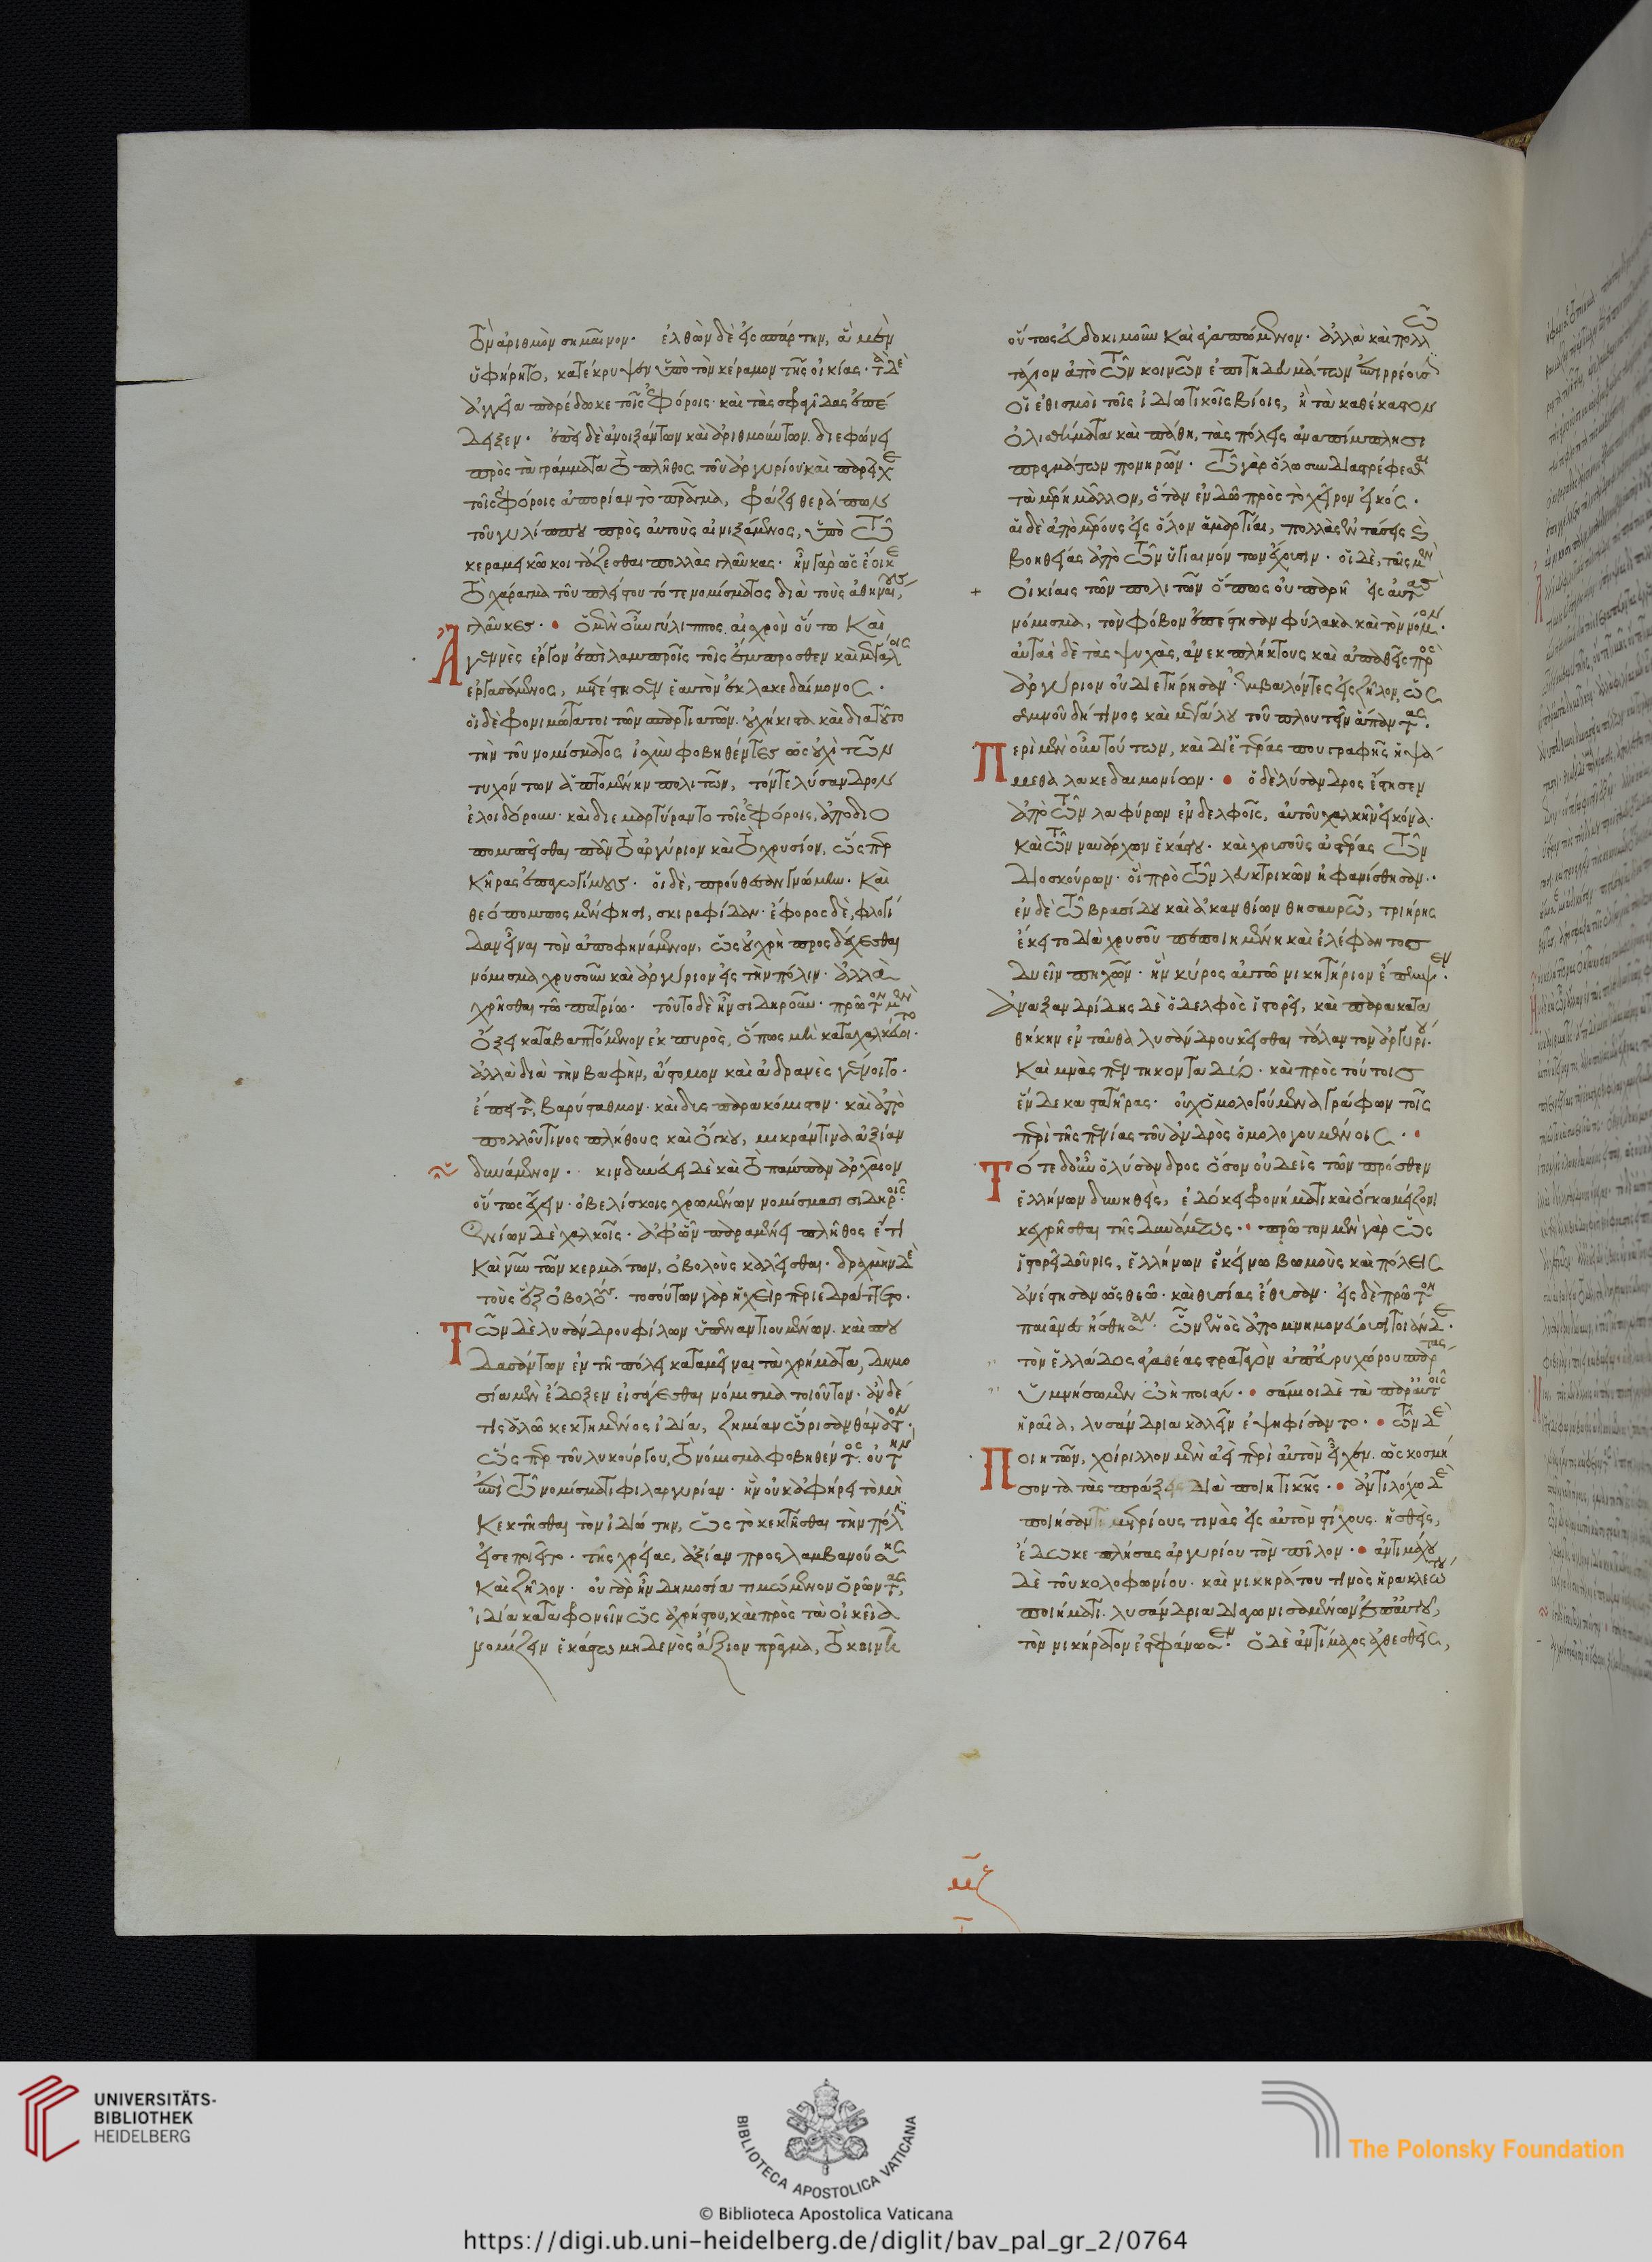 τὸν ἀριθμὸν σημαῖνον. ἐλθὼν δὲ εἰς σπάρτην, ἃ μὲν
ὑφήρητο, κατέκρυψεν ὑπὸ τὸν κέραμον τῆς οἰκίας. τὰ δὲ
ἀγγεῖα παρέδωκε τοῖς ἐφόροις· καὶ τὰς σφραγῖδας ἐπέ
δειξεν. ἐπεὶ δὲ ἀνοιξάντων καὶ ἀριθμούντων. διεφώνει
πρὸς τὰ γράμματα τὸ πλῆθος τοῦ ἀργυρίου καὶ παρεῖχε
τοῖς ἐφόροις ἀπορίαν τὸ πρᾶγμα, φράζει θεράπων
τοῦ γυλίππου πρὸς αὐτοὺς αἰνιξάμενος, ὑπὸ τῶ
κεραμεικῶ κοιτάζεσθαι πολλὰς γλαῦκας. ἦν γὰρ ὡς ἔοικε
τὸ χάραγμα τοῦ πλείστου τότε νομίσματος διὰ τοὺς ἀθηναίους,
γλαῦκες. ὁ μὲν οὖν γύλιππος αἰσχρὸν οὕτω καὶ
Ἀγεννὲς ἔργον ἐπὶ λαμπροῖς τοῖς ἔμπροσθεν καὶ μεγάλοις
ἐργασάμενος, μετέστησεν ἑαυτὸν ἐκ λακεδαίμονος.
οἱ δὲ φρονιμώτατοι τῶν σπαρτιατῶν. οὐχ ἥκιστα καὶ διὰ τοῦτο
τὴν τοῦ νομίσματος ἰσχὺν φοβηθέντες ὡς οὐχὶ τῶν
τυχόντων ἁπτομένην πολιτῶν, τόν τε λύσανδρον
ἐλοιδόρουν· καὶ διεμαρτύραντο τοῖς ἐφόροις, ἀποδιο
πομπεῖσθαι πᾶν τὸ ἀργύριον καὶ τὸ χρυσίον, ὥσπερ
κῆρας ἐπαγωγίμους. οἱ δὲ, προύθεσαν γνώμην. καὶ
θεόπομπος μέν φησι, σκιραφίδαν· ἔφορος δὲ, φλογί
δαν εἶναι τὸν ἀποφηνάμενον, ὡς οὐ χρὴ προσδέχεσθαι
νόμισμα χρυσοῦν καὶ ἀργύριον εἰς τὴν πόλιν. ἀλλὰ
χρῆσθαι τῶ πατρίω. τοῦτο δὲ ἦν σιδηροῦν. πρῶτον μὲν
ὄξει καταβαπτόμενον ἐκ πυρὸς, ὅπως μὴ καταχαλκεύοιτο.
ἀλλὰ διὰ τὴν βαφὴν, ἄστομον καὶ ἀδρανὲς γένοιτο.
ἔπειτα, βαρύσταθμον· καὶ δυσπαρακόμιστον· καὶ ἀπὸ
πολλοῦ τινος πλήθους καὶ ὄγκου, μικράν τινα ἀξίαν
δυνάμενον. κινδυνεύει δὲ καὶ τὸ πάμπαν ἀρχαῖον
οὕτως ἔχειν· ὀβελίσκοις χρωμένων νομίσμασι σιδηροῖς.
ἐνίων δὲ χαλκοῖς. ἀφ' ὧν παραμένει πλῆθος ἔτι
καὶ νῦν τῶν κερμάτων, ὀβολοὺς καλεῖσθαι. δραχμὴν δὲ
τοὺς ἓξ ὀβολούς. τοσούτων γὰρ ἡ χεὶρ περιεδράττετο.
Τῶν δὲ λυσάνδρου φίλων ὑπεναντιουμένων. καὶ σπου
δασάντων ἐν τῆ πόλει καταμεῖναι τὰ χρήματα, δημο
σία μὲν ἔδοξεν εἰσάγεσθαι νόμισμα τοιοῦτον. ἂν δέ
τις ἁλῶ κεκτημένος ἰδία, ζημίαν ὥρισαν θάνατον.
ὥσπερ τοῦ λυκούργου, τὸ νόμισμα φοβηθέντος. οὐ τὴν
ἐπὶ τῶ νομίσματι φιλαργυρίαν. ἣν οὐκ ἀφήρει τὸ μὴ
κεκτῆσθαι τὸν ἰδιώτην, ὡς τὸ κεκτῆσθαι τὴν πόλιν
εἰσεποιεῖτο. τῆς χρείας, ἀξίαν προσλαμβανούσης
καὶ ζῆλον. οὐ γὰρ ἦν δημοσία τιμώμενον ὁρῶντας,
ἰδία καταφρονεῖν ὡς ἀχρήστου, καὶ πρὸς τὰ οἰκεῖα
νομίζειν ἑκάστω μηδενὸς ἄξιον πρᾶγμα, τὸ κοινῆ
οὕτως εὐδοκιμοῦν καὶ ἀγαπώμενον. ἀλλὰ καὶ πολλῶ
τάχιον ἀπὸ τῶν κοινῶν ἐπιτηδευμάτων ἐπιρρέουσιν
οἱ ἐθισμοὶ τοῖς ἰδιωτικοῖς βίοις, ἢ τὰ καθέκαστον
ὀλισθήματα καὶ πάθη, τὰς πόλεις ἀναπίμπλησι
πραγμάτων πονηρῶν. τῶ γὰρ ὅλω συνδιαστρέφεσθαι
τὰ μέρη μᾶλλον, ὅταν ἐνδῶ πρὸς τὸ χεῖρον εἰκός.
αἱ δὲ ἀπὸ μέρους εἰς ὅλον ἁμαρτίαι, πολλὰς ἐνστάσεις καὶ
βοηθείας ἀπὸ τῶν ὑγιαινόντων ἔχουσιν. οἱ δὲ, ταῖς μὲν
οἰκίαις τῶν πολιτῶν ὅπως οὐ παρῆ εἰς αὐτὰς
νόμισμα, τὸν φόβον ἐπέστησαν φύλακα καὶ τὸν νόμον.
αὐτὰς δὲ τὰς ψυχὰς, ἀνεκπλήκτους καὶ ἀπαθεῖς πρὸς
ἀργύριον οὐ διετήρησαν· ἐμβαλόντες εἰς ζῆλον, ὡς
σεμνοῦ δή τινος καὶ μεγάλου τοῦ πλουτεῖν ἅπαντας.
Περὶ μὲν οὖν τούτων, καὶ δι' ἑτέρας που γραφῆς ἡψά
μεθα λακεδαιμονίων. ὁ δὲ λύσανδρος ἔστησεν
ἀπὸ τῶν λαφύρων ἐν δελφοῖς, αὑτοῦ χαλκῆν εἰκόνα.
καὶ τῶν ναυάρχων ἑκάστου. καὶ χρυσοῦς ἀστέρας τῶν
διοσκούρων. οἳ πρὸ τῶν λευκτρικῶν ἠφανίσθησαν.
ἐν δὲ τῶ βρασίδου καὶ ἀκανθίων θησαυρῶ, τριήρης
ἔκειτο διὰ χρυσοῦ πεποιημένη καὶ ἐλέφαντος
δυεῖν πηχῶν. ἣν κύρος αὐτῶ νικητήριον ἔπεμψεν.
ἀναξανδρίδης δὲ ὁ δελφὸς ἱστορεῖ, καὶ παρακατα
θήκην ἐνταῦθα λυσάνδρου κεῖσθαι τάλαντον ἀργυρίου.
καὶ μνᾶς πεντήκοντα δύο. καὶ πρὸς τούτοις
ἕνδεκα στατῆρας. οὐχ ὁμολογούμενα γράφων τοῖς
περὶ τῆς πενίας τοῦ ἀνδρὸς ὁμολογουμένοις.
Τότε δ' οὖν ὁ λύσανδρος ὅσον οὐδεὶς τῶν πρόσθεν
ἑλλήνων δυνηθεὶς, ἐδόκει φρονήματι καὶ ὄγκω μείζονι
κεχρῆσθαι τῆς δυνάμεως. πρῶτον μὲν γὰρ ὡς
ἱστορεῖ δοῦρις, ἑλλήνων ἐκείνω βωμοὺς καὶ πόλεις
ἀνέστησαν ὡς θεῶ. καὶ θυσίας ἔθυσαν. εἰς δὲ πρῶτον
παιᾶνες ἤσθησαν. ὧν ἑνὸς ἀπομνημονεύουσι τοιάνδε.
τὸν ἑλλάδος ἀγαθέας στραταγὸν ἀπ' εὐρυχόρου σπάρτας
ὑμνήσωμεν ὦ ἰὴ παιάν. σάμιοι δὲ τὰ παρ' αὐτοῖς
ἡραῖα, λυσάνδρια καλεῖν ἐψηφίσαντο. τῶν δὲ
Ποιητῶν, χοίριλλον μὲν ἀεὶ περὶ αὑτὸν εἶχεν. ὡς κοσμή
σοντα τὰς πράξεις διὰ ποιητικῆς. ἀντιλόχω δὲ
ποιήσαντι μετρίους τινὰς εἰς αὐτὸν στίχους. ἡσθεὶς,
ἔδωκε πλήσας ἀργυρίου τὸν πῖλον. ἀντιμάχου
δὲ τοῦ κολοφωνίου. καὶ νικηράτου τινὸς ἡρακλεώτου
ποιήμασι λυσάνδρια διαγωνισαμένων ἐπ' αὐτοῦ,
τὸν νικήρατον ἐστεφάνωσεν. ὁ δὲ ἀντίμαχος ἀχθεσθεὶς,
UNIVERSITÄTS-
BIBLIOTHEK
HEIDELBERG
BIBLIOTECA APOSTOLICA VATICANA
The Polonsky Foundation
© Biblioteca Apostolica Vaticana
https://digi.ub.uni-heidelberg.de/diglit/bav_pal_gr_2/0764